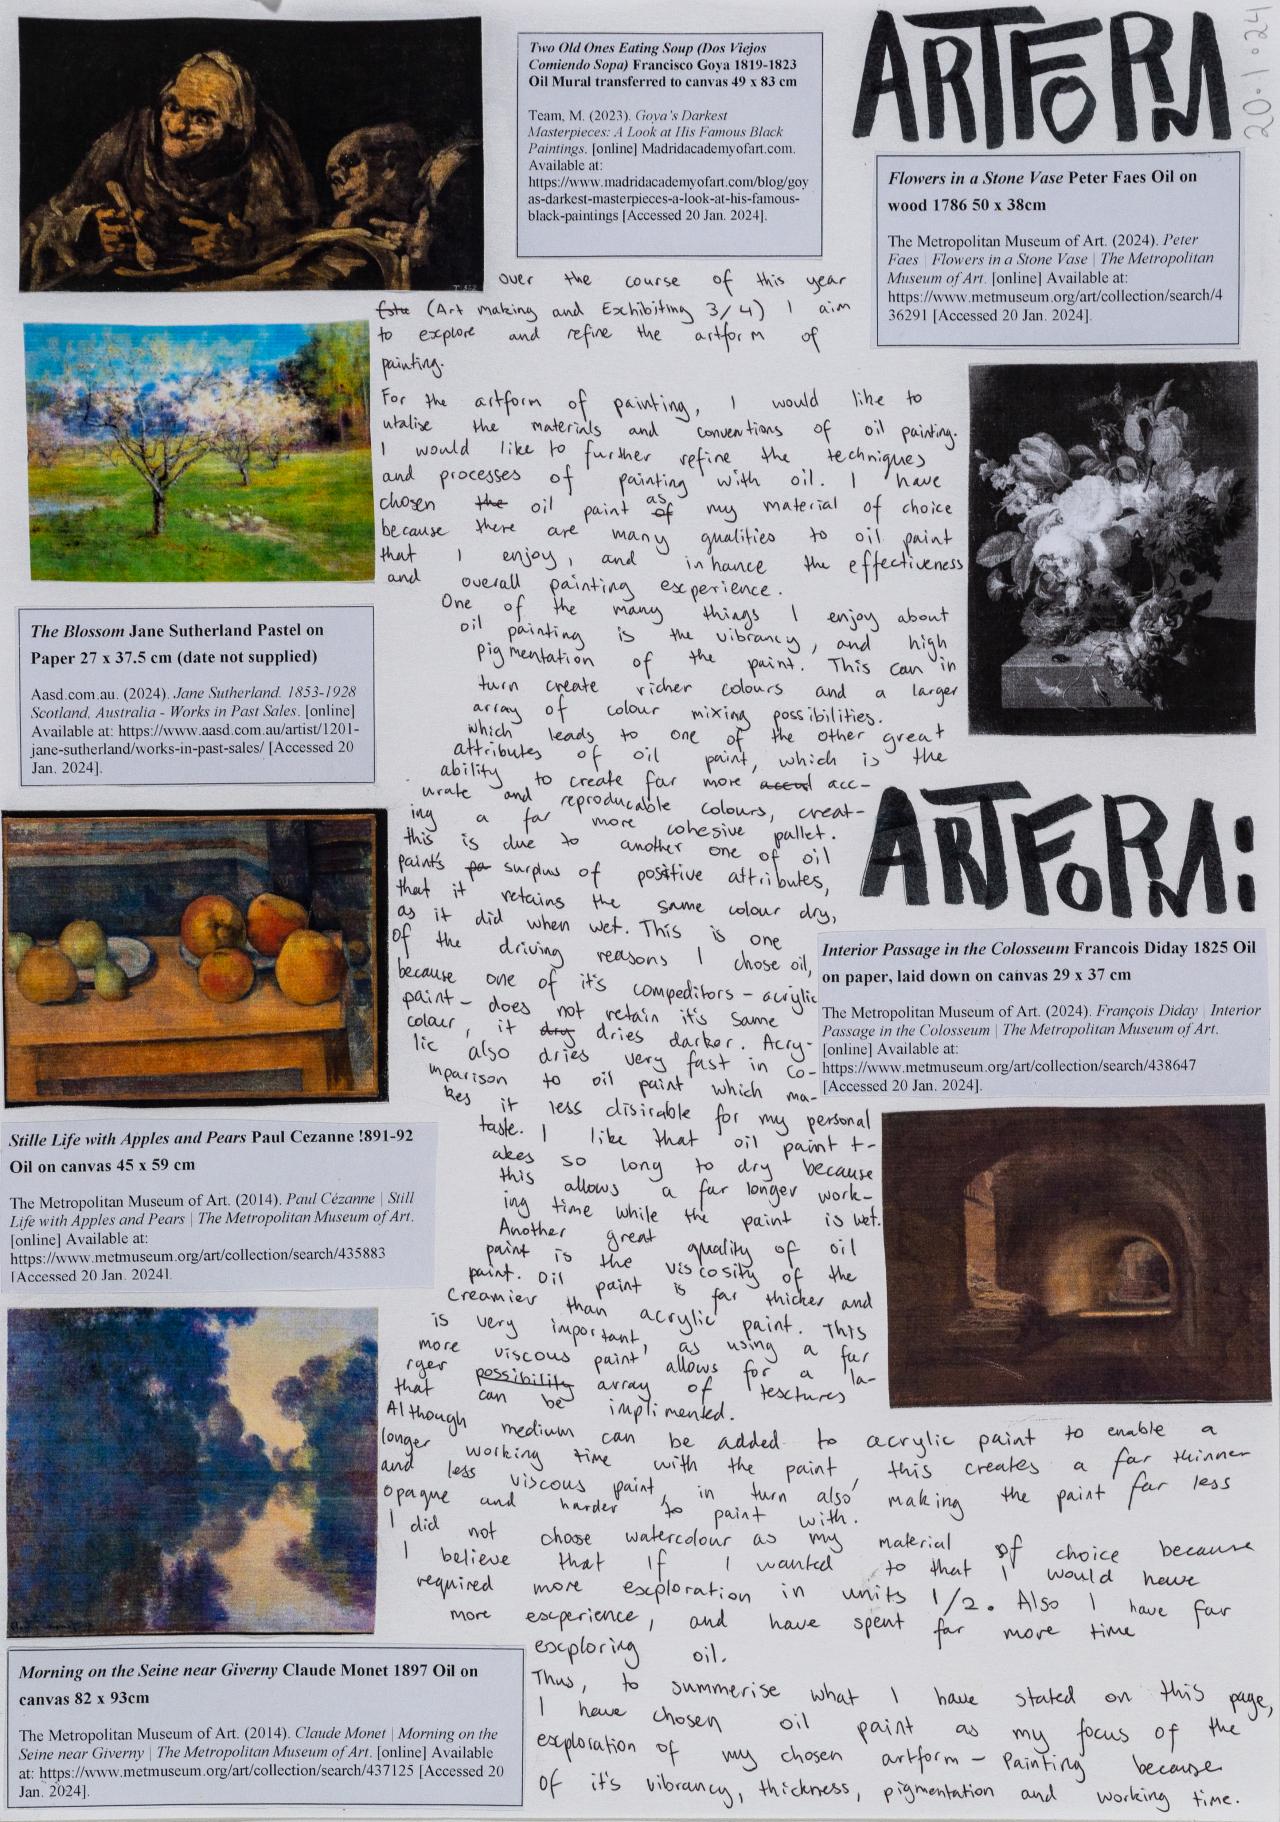 ARTFORM
20.1.24
Two Old Ones Eating Soup (Dos Viejos
Comiendo Sopa) Francisco Goya 1819-1823
Oil Mural transferred to canvas 49 x 83 cm
Team, M. (2023). Goya's Darkest
Masterpieces: A Look at His Famous Black
Paintings. [online] Madridacademyofart.com.
Available at:
https://www.madridacademyofart.com/blog/goy
as-darkest-masterpieces-a-look-at-his-famous-
black-paintings [Accessed 20 Jan. 2024].
Flowers in a Stone Vase Peter Faes Oil on
wood 1786 50 x 38cm
The Metropolitan Museum of Art. (2024). Peter
Faes | Flowers in a Stone Vase | The Metropolitan
Museum of Art. [online] Available at:
https://www.metmuseum.org/art/collection/search/4
36291 [Accessed 20 Jan. 2024].
over the course of this year
(Art making and Exhibiting 3/4) I aim
to explore and refine the artform of
painting.
For the artform of painting, I would like to
utalise the materials and conventions of oil painting.
I would like to further refine the techniques
and processes of painting with oil. I have
chosen the oil paint as of my material of choice
because there are many qualities to oil paint
that I enjoy, and inhance the effectiveness
and overall painting experience.
One of the many things I enjoy about
oil painting is the vibrancy, and high
pigmentation of the paint. This can in
turn create richer colours and a larger
array of colour mixing possibilities.
which leads to one of the other great
attributes of oil paint, which is the
ability to create far more acc-
urate and reproducable colours, creat-
ing a far more cohesive pallet.
this is due to another one of oil
paints pa surplus of positive attributes,
that it retains the same colour dry,
as it did when wet. This is one
of the driving reasons I chose oil,
because one of it's compeditors - acrylic
paint - does not retain it's same
colour, it dry dries darker. Acry-
lic also dries very fast in co-
mparison to oil paint which ma-
kes it less disirable for my personal
taste. I like that oil paint t-
akes so long to dry because
this allows a far longer work-
ing time while the paint is wet.
Another great quality of oil
paint is the viscosity of the
paint. Oil paint is far thicker and
creamier than acrylic paint. This
is very important, as using a far
more viscous paint allows for a la-
rger possibility array of texctures
that can be implimented.
Although medium can be added to acrylic paint to enable a
longer working time with the paint, this creates a far thinner
and less viscous paint, in turn also making the paint far less
opaque and harder to paint with.
I did not chose watercolour as my material of choice because
I believe that if I wanted to that I would have
required more exploration in units 1/2. Also I have far
more experience, and have spent far more time
exploring oil.
Thus, to summerise what I have stated on this page,
I have chosen oil paint as my focus of the
exploration of my chosen artform - Painting because
of it's vibrancy, thickness, pigmentation and working time.
The Blossom Jane Sutherland Pastel on
Paper 27 x 37.5 cm (date not supplied)
Aasd.com.au. (2024). Jane Sutherland. 1853-1928
Scotland, Australia - Works in Past Sales. [online]
Available at: https://www.aasd.com.au/artist/1201-
jane-sutherland/works-in-past-sales/ [Accessed 20
Jan. 2024].
ARTFORM:
Interior Passage in the Colosseum Francois Diday 1825 Oil
on paper, laid down on canvas 29 x 37 cm
The Metropolitan Museum of Art. (2024). François Diday | Interior
Passage in the Colosseum | The Metropolitan Museum of Art.
[online] Available at:
https://www.metmuseum.org/art/collection/search/438647
[Accessed 20 Jan. 2024].
Stille Life with Apples and Pears Paul Cezanne !891-92
Oil on canvas 45 x 59 cm
The Metropolitan Museum of Art. (2014). Paul Cézanne | Still
Life with Apples and Pears | The Metropolitan Museum of Art.
[online] Available at:
https://www.metmuseum.org/art/collection/search/435883
[Accessed 20 Jan. 2024].
Morning on the Seine near Giverny Claude Monet 1897 Oil on
canvas 82 x 93cm
The Metropolitan Museum of Art. (2014). Claude Monet | Morning on the
Seine near Giverny | The Metropolitan Museum of Art. [online] Available
at: https://www.metmuseum.org/art/collection/search/437125 [Accessed 20
Jan. 2024].